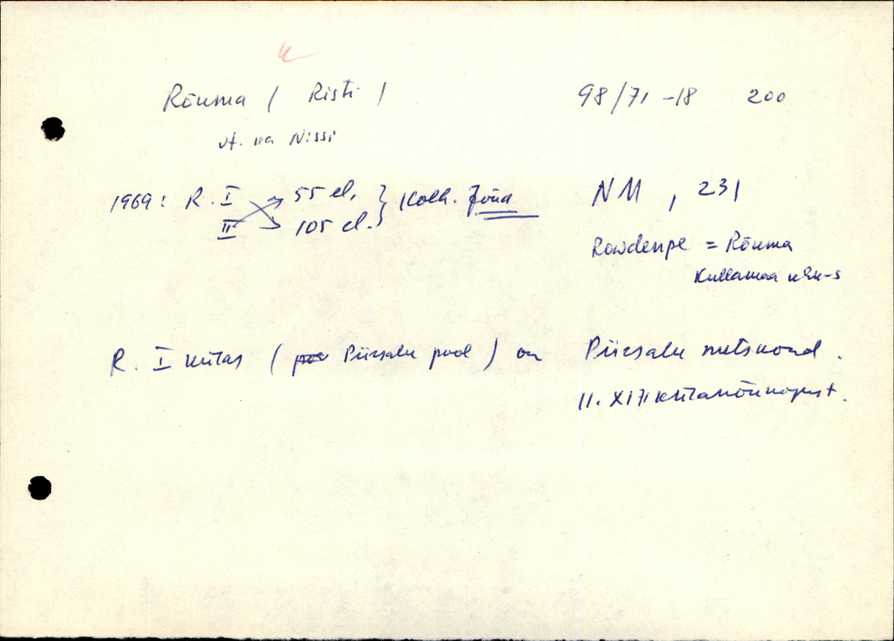 Rõuma ( Risti ) 98/71-18 200
vt. ka Nissi
1969: R. I 55 el. } Kolh. Jõud NM, 231
II 105 el.
Rowdenpe = Rõuma
Kullamaa khk-s
R. I külas ( Piirsalu pool ) on Piirsalu metskond.
11. XI 71 külanõukogust.